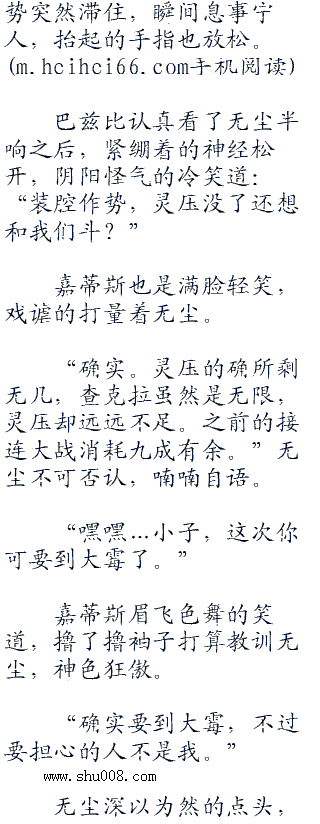 势突然滞住，瞬间息事宁
人，抬起的手指也放松。
(m.hcihci66.com手机阅读)
巴兹比认真看了无尘半
响之后，紧绷着的神经松
开，阴阳怪气的冷笑道：
“装腔作势，灵压没了还想
和我们斗？”
嘉蒂斯也是满脸轻笑，
戏谑的打量着无尘。
“确实。灵压的确所剩
无几，查克拉虽然是无限，
灵压却远远不足。之前的接
连大战消耗九成有余。”无
尘不可否认，喃喃自语。
“嘿嘿…小子，这次你
可要到大霉了。”
嘉蒂斯眉飞色舞的笑
道，撸了撸袖子打算教训无
尘，神色狂傲。
“确实要到大霉，不过
要担心的人不是我。”
www.shu008.com
无尘深以为然的点头，